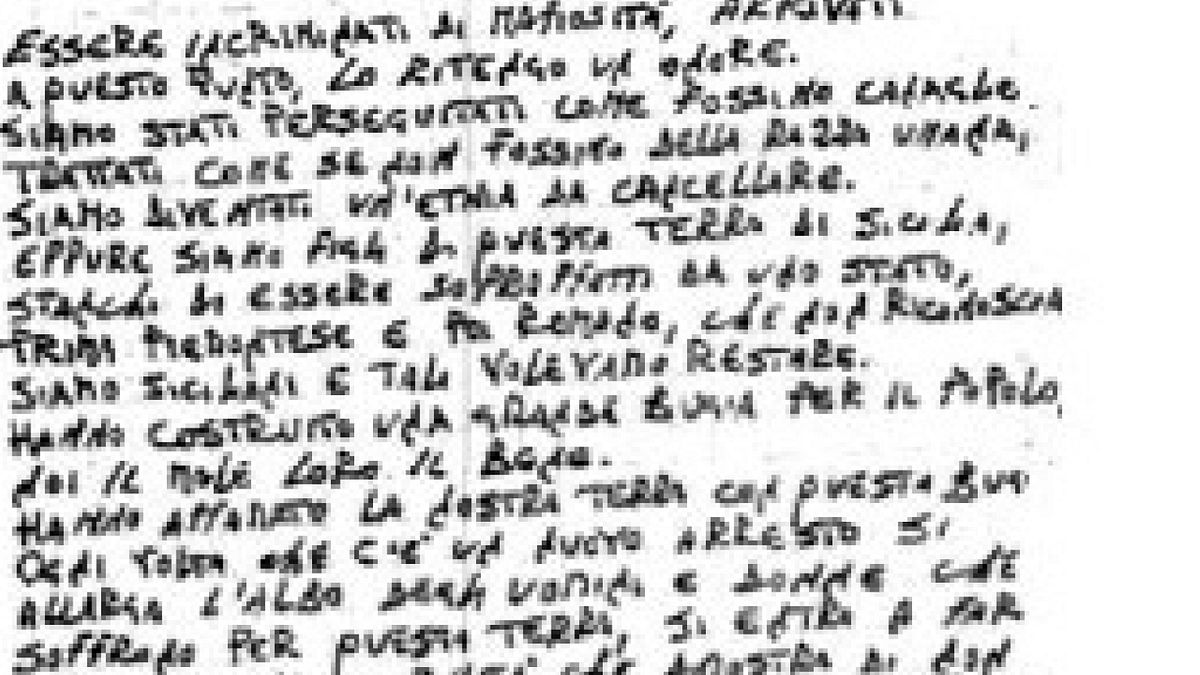 ESSERE INCRIMINATI DI MAFIOSITÀ, ARRIVATI
A QUESTO PUNTO, LO RITENGO UN ONORE.
SIAMO STATI PERSEGUITATI COME FOSSIMO CANAGLIE.
TRATTATI COME SE NON FOSSIMO DELLA RAZZA UMANA,
SIAMO DIVENTATI UN'ETNIA DA CANCELLARE.
EPPURE SIAMO FIGLI DI QUESTA TERRA DI SICILIA,
STANCHI DI ESSERE SOPRAFFATTI DA UNO STATO,
PRIMA PIEMONTESE E POI ROMANO, CHE NON RICONOSCIA
SIAMO SICILIANI E TALI VOLEVAMO RESTARE.
HANNO COSTRUITO UNA GRANDE BUGIA PER IL POPOLO,
NOI IL MALE LORO IL BENE.
HANNO AFFAMATO LA NOSTRA TERRA CON QUESTA BUG
OGNI VOLTA CHE C'E' UN NUOVO ARRESTO SI
ALLARGA L'ALBO DEGLI UOMINI E DONNE CHE
SOFFRONO PER QUESTA TERRA, SI ENTRA A FAR
CHE DIMOSTRA DI NON